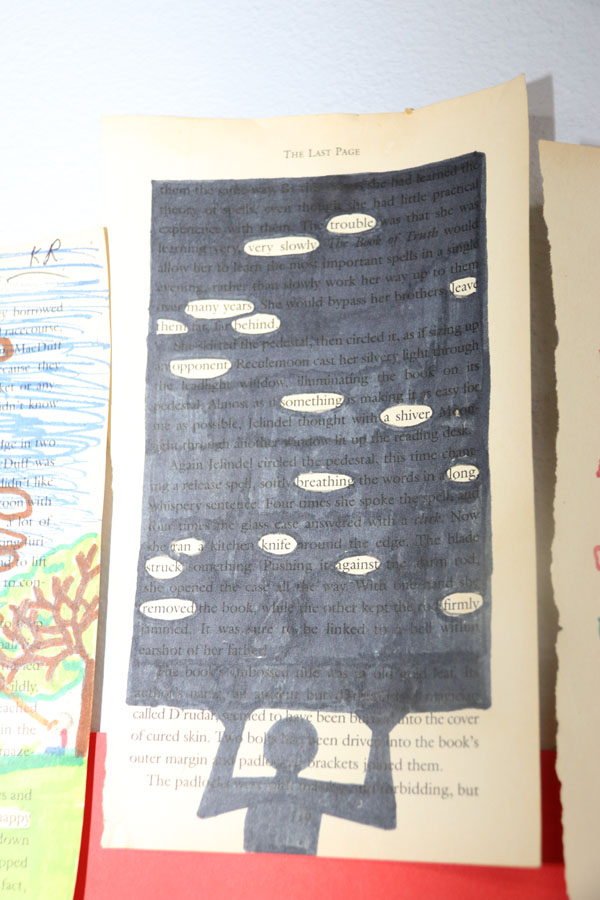 KR
y borrowed
racecourse.
MacDuff
cause they
ker or any-
idn't know
dge in two
Duff was
didn't like
oon with
a lot of
king furi-
nd to lift
to con-
wildly.
eached
in the
maze-
es and
rappy
down
pped
fact,
THE LAST PAGE
them the same way. she had learned the
theory of spells, even though she had little practical
experience with them. The trouble was that she was
learning very, very slowly. The Book of Truth would
allow her to learn the most important spells in a single
evening, rather than slowly work her way up to them
over many years. She would bypass her brothers, leave
them far, far behind.
She skirted the pedestal, then circled it, as if sizing up
opponent. Reculemoon cast her silvery light through
the leadlight window, illuminating the book on its
pedestal. Almost as if something is making it as easy for
me as possible, Jelindel thought with a shiver.
light through another window lit up the reading desk.
Again Jelindel circled the pedestal, this time chant-
ing a release spell, softly breathing the words in a long,
whispery sentence. Four times she spoke the spell and
four times the glass case answered with a click. Now
she ran a kitchen knife around the edge. The blade
struck something. Pushing it against the alarm rod,
she opened the case all the way. With one hand she
removed the book, while the other kept the rod firmly
jammed. It was sure to be linked to a bell within
earshot of her father!
The book's embossed title was of old gold leaf. Its
author's name, an ancient but
called D'rudar, seemed to have been burned into the cover
of cured skin. Two bolts had been driven into the book's
outer margin and padlocked brackets joined them.
The padlocks were and forbidding, but